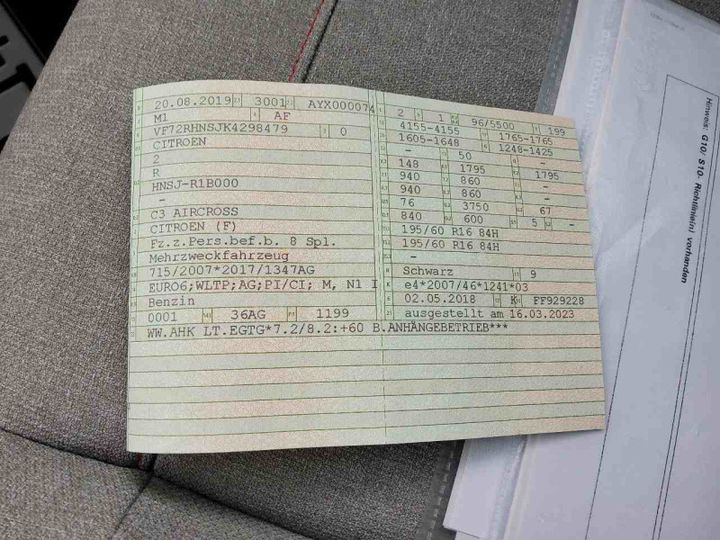 20.08.2019 3001 AYX000074
M1 AF
VF72RHNSJK4298479 3 0
CITROEN
2
R
HNSJ-R1B000
-
C3 AIRCROSS
CITROEN (F)
Fz.z.Pers.bef.b. 8 Spl.
Mehrzweckfahrzeug
715/2007*2017/1347AG
EURO6;WLTP;AG;PI/CI; M, N1 I
Benzin
0001 36AG 1199
WW.AHK LT.EGTG*7.2/8.2:+60 B.ANHÄNGEBETRIEB***
2 1 96/5500 199
4155-4155 1765-1765
1605-1648 1248-1425
- 50 -
148 1795 1795
940 860 -
940 860 -
76 3750 67
840 600 5 -
195/60 R16 84H
195/60 R16 84H
-
Schwarz 9
e4*2007/46*1241*03
02.05.2018 K FF929228
ausgestellt am 16.03.2023
Hinweis: G10/ S10- Richtlinie(n) vorhanden